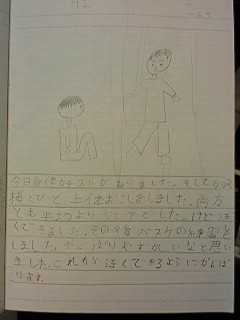 今日体力テストがありました。そして反復
横とびと上体おこしをしました。両方
とも平均より少し下でした。けど
くできました。その後バスケの練習を
しました。やっぱりむずかしいなと思い
ました。これから
くできるようにがんば
ります。